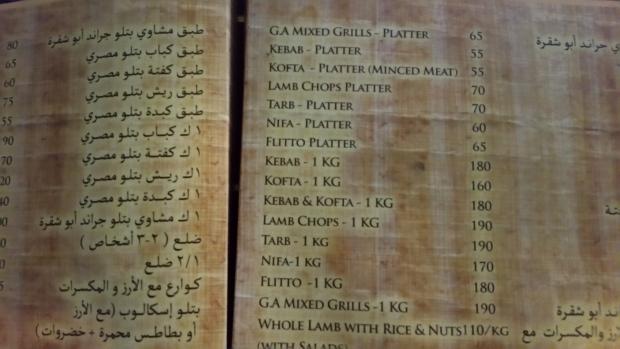 طبق مشاوي بتلو جراند أبو شقرة
80
طبق كباب بتلو مصري
65
طبق كفتة بتلو مصري
60
طبق ريش بتلو مصري
75
طبق كبدة بتلو مصري
55
١ ك كباب بتلو مصري
90
١ ك كفتة بتلو مصري
70
١ ك ريش بتلو مصري
١ ك كبدة بتلو مصري
١ ك مشاوي بتلو جراند أبو شقرة
ضلع ( ٢-٣ أشخاص )
٢/١ ضلع
كوارع مع الأرز و المكسرات
بتلو إسكالوب (مع الأرز
أو بطاطس محمرة + خضروات)
G.A Mixed Grills - Platter 65
Kebab - Platter 55
Kofta - Platter (Minced Meat) 55
Lamb Chops Platter 70
Tarb - Platter 70
Nifa - Platter 60
Flitto Platter 65
Kebab - 1 KG 180
Kofta - 1 KG 160
Kebab & Kofta - 1 KG 180
Lamb Chops - 1 KG 190
Tarb - 1 KG 190
Nifa-1 KG 170
Flitto -1 KG 180
G.A Mixed Grills -1 KG 190
Whole Lamb with Rice & Nuts 110/KG
(with Salads)
جراند أبو شقرة
أبو شقرة
والمكسرات مع